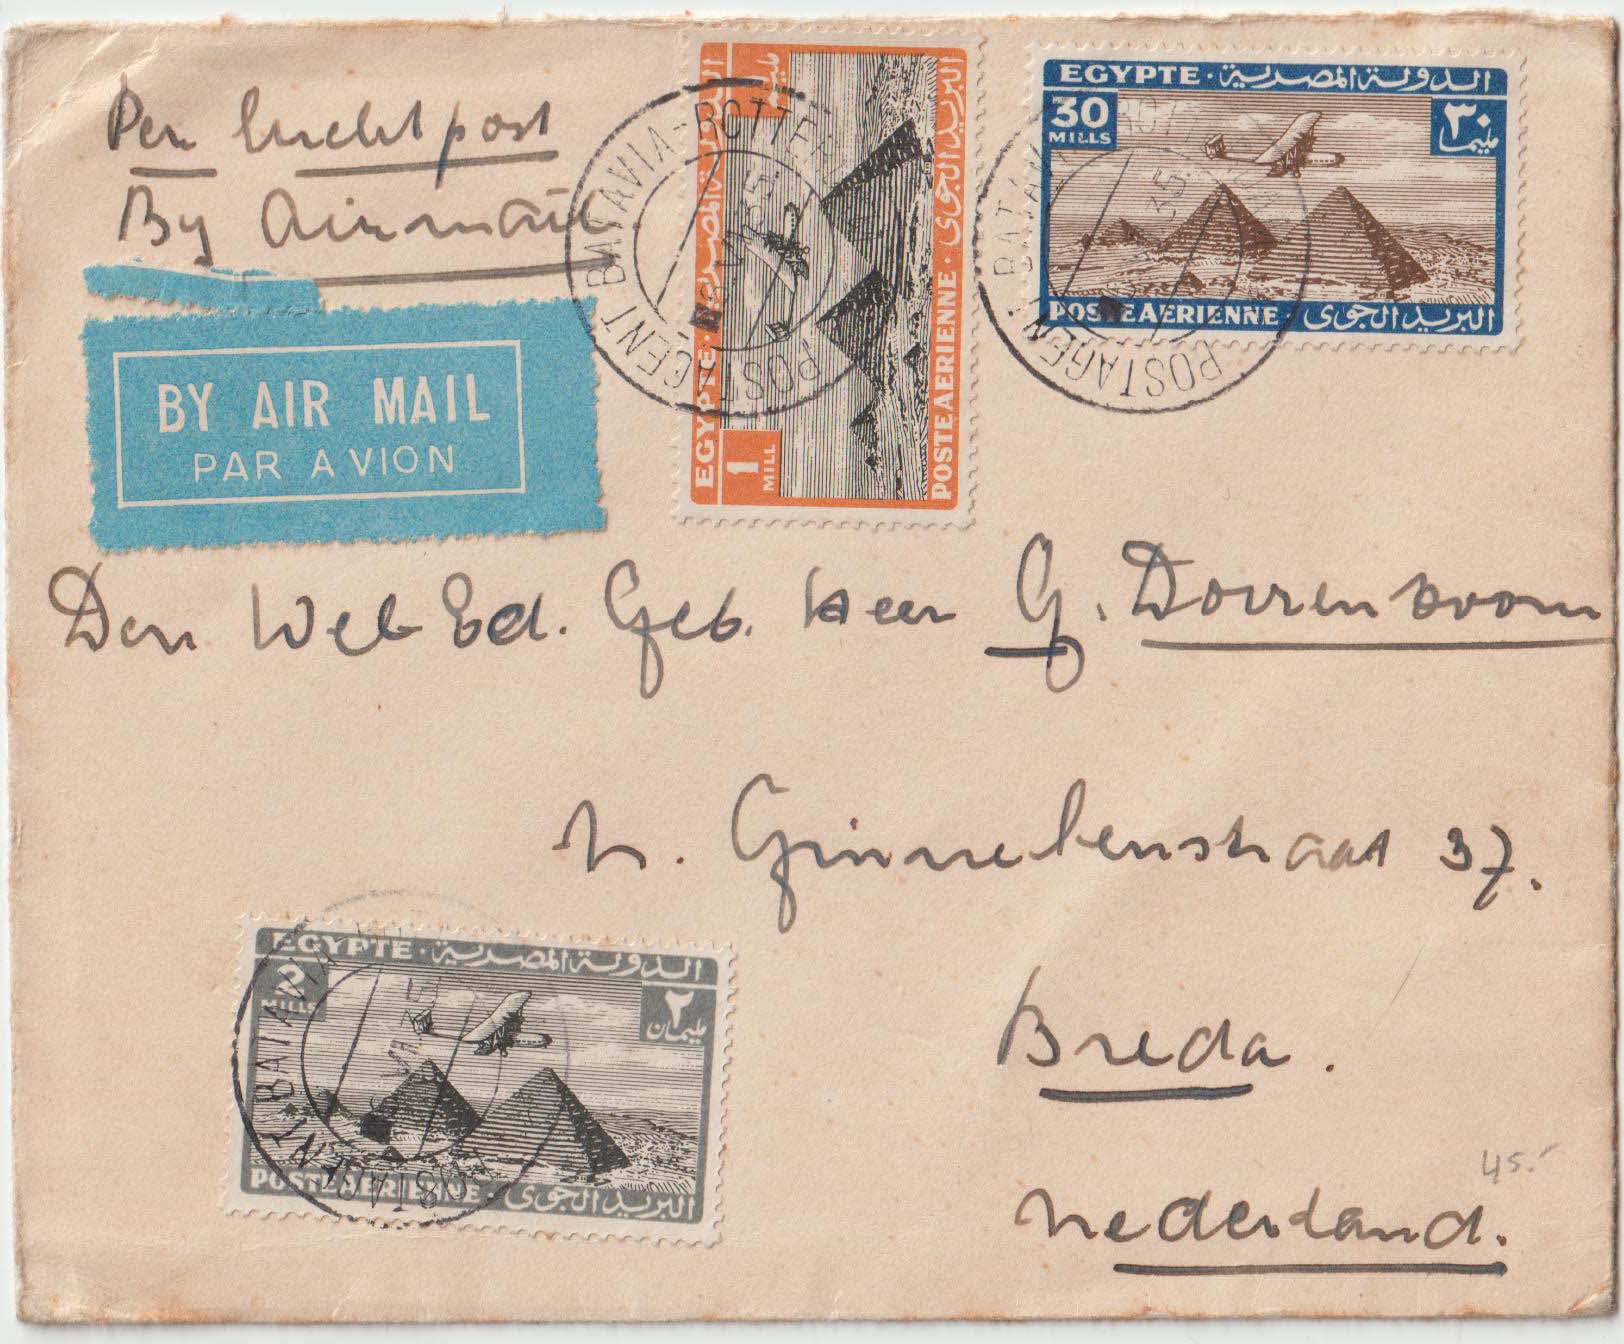 Per luchtpost
By Airmail
BY AIR MAIL
PAR AVION
EGYPTE · الدولة المصرية
1 MILL
POSTE AERIENNE · البريد الجوى
POSTAGENT BATAVIA-ROTTE
EGYPTE · الدولة المصرية
30 MILLS ٣٠ مليما
POSTE AERIENNE · البريد الجوى
POSTAGENT BATAVIA
35
Den Wel Ed. Geb. Heer G.
Ginnekenstraat 37.
Breda.
Nederland.
45.-
EGYPTE · الدولة المصرية
2 MILLS ٢ مليمان
POSTE AERIENNE · البريد الجوى
POSTAGENT BATAVIA